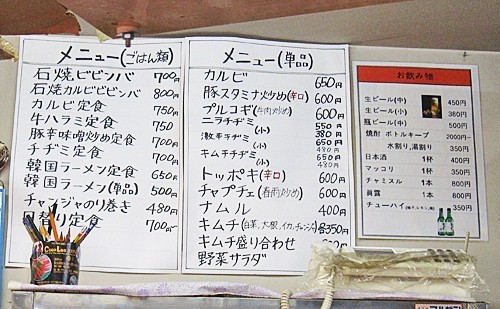 メニュー(ごはん類)
石焼ビビンバ 700円
石焼カルビビビンバ 800円
カルビ定食 750円
牛ハラミ定食 750円
豚辛味噌炒め定食 700円
チヂミ定食 700円
韓国ラーメン定食 650円
韓国ラーメン(単品) 500円
チャンジャのり巻き 480円
日替り定食 700円
メニュー(単品)
カルビ 650円
豚スタミナ炒め(辛口) 600円
プルコギ(牛肉炒め) 600円
ニラチヂミ 550円
(小) 380円
激辛チヂミ 650円
(小) 480円
キムチチヂミ 650円
(小) 480円
トッポキ(辛口) 600円
チャプチェ(春雨炒め) 600円
ナムル 400円
キムチ(白菜、大根、イカ、チャンジャ)各350円
キムチ盛り合わせ
野菜サラダ
お飲み物
生ビール(中) 450円
生ビール(小) 380円
瓶ビール(中) 500円
焼酎 ボトルキープ 2000円~
水割り,湯割り 350円
日本酒 1杯 400円
マッコリ 1杯 350円
チャミスル 1本 800円
眞露 1本 800円
チューハイ 350円